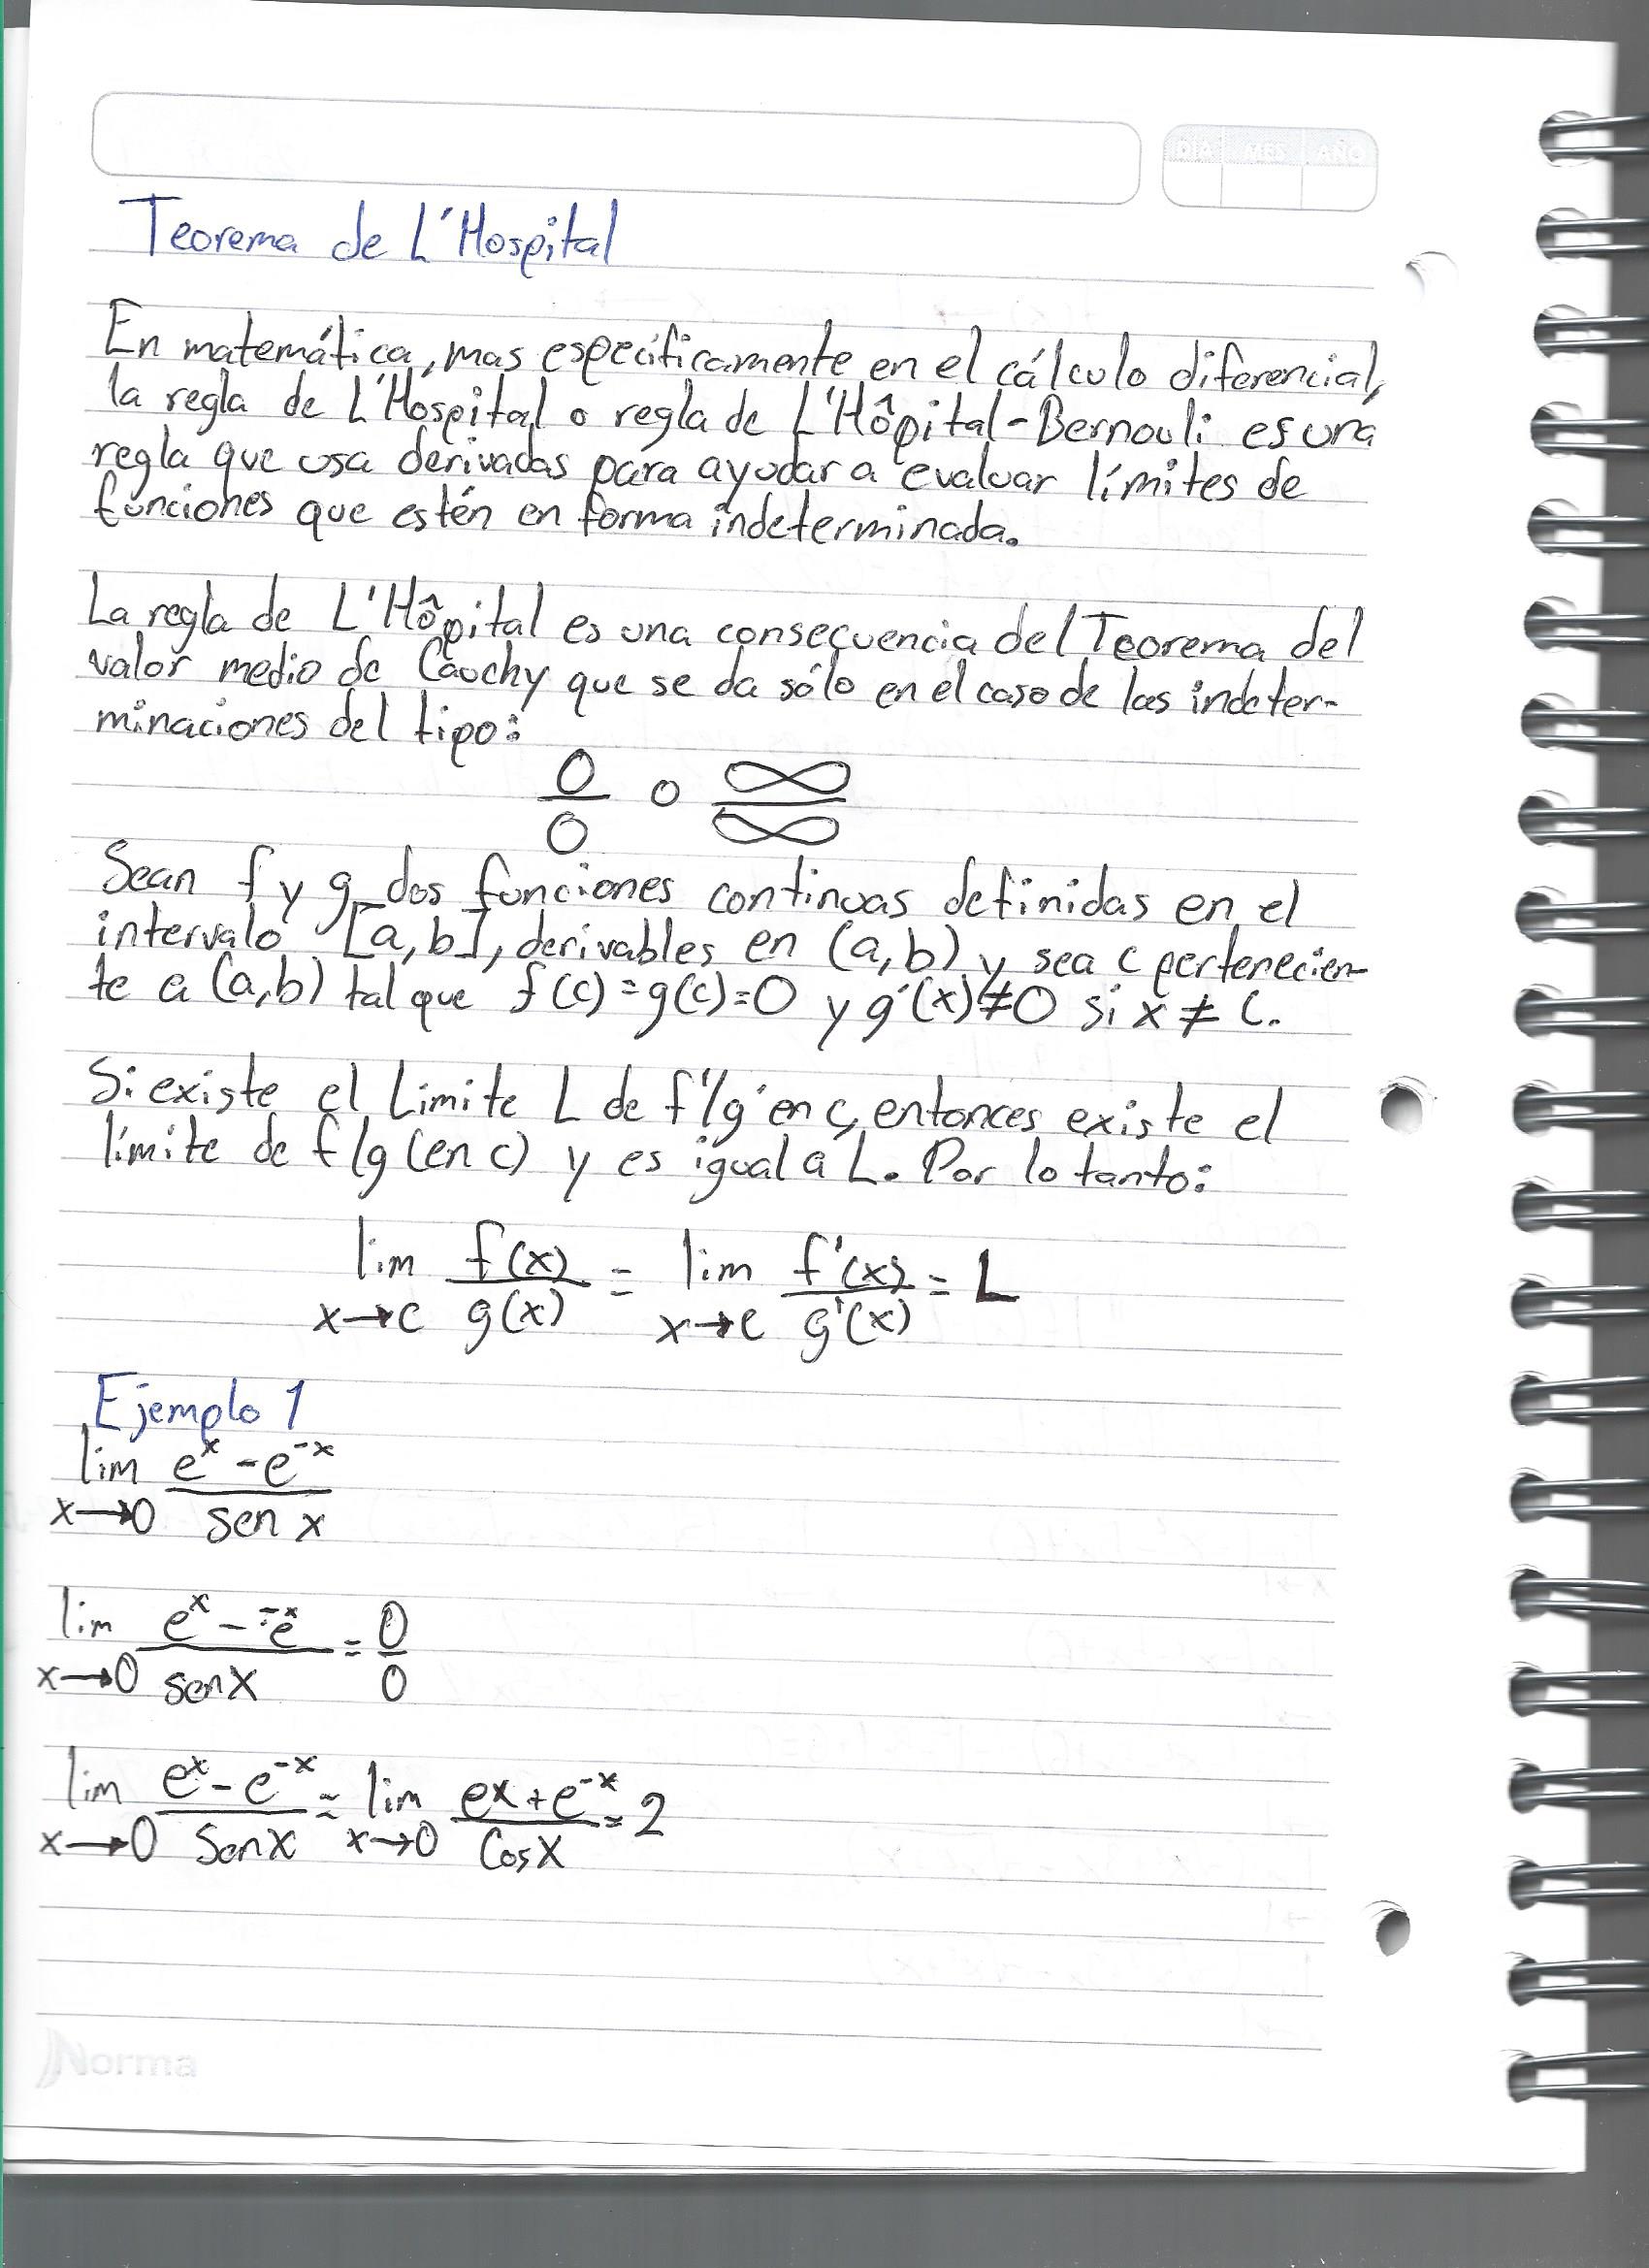 DIA MES AÑO
Teorema de L'Hospital
En matemática, mas específicamente en el cálculo diferencial,
la regla de L'Hospital o regla de L'Hôpital-Bernouli es una
regla que usa derivadas para ayudar a evaluar límites de
funciones que estén en forma indeterminada.
La regla de L'Hôpital es una consecuencia del Teorema del
valor medio de Cauchy que se da sólo en el caso de las indeter-
minaciones del tipo:
0/0 o ∞/∞
Sean f y g dos funciones continuas definidas en el
intervalo [a,b], derivables en (a,b) y sea c pertenecien-
te a (a,b) tal que f(c)=g(c)=0 y g'(x)≠0 si x ≠ c.
Si existe el Límite L de f'/g' en c, entonces existe el
límite de f/g (en c) y es igual a L. Por lo tanto:
lim x→c f(x)/g(x) = lim x→c f'(x)/g'(x) = L
Ejemplo 1
lim x→0 (e^x - e^-x)/sen x
lim x→0 (e^x - e^-x)/sen x = 0/0
lim x→0 (e^x - e^-x)/Sen x = lim x→0 (ex + e^-x)/Cos x = 2
Norma